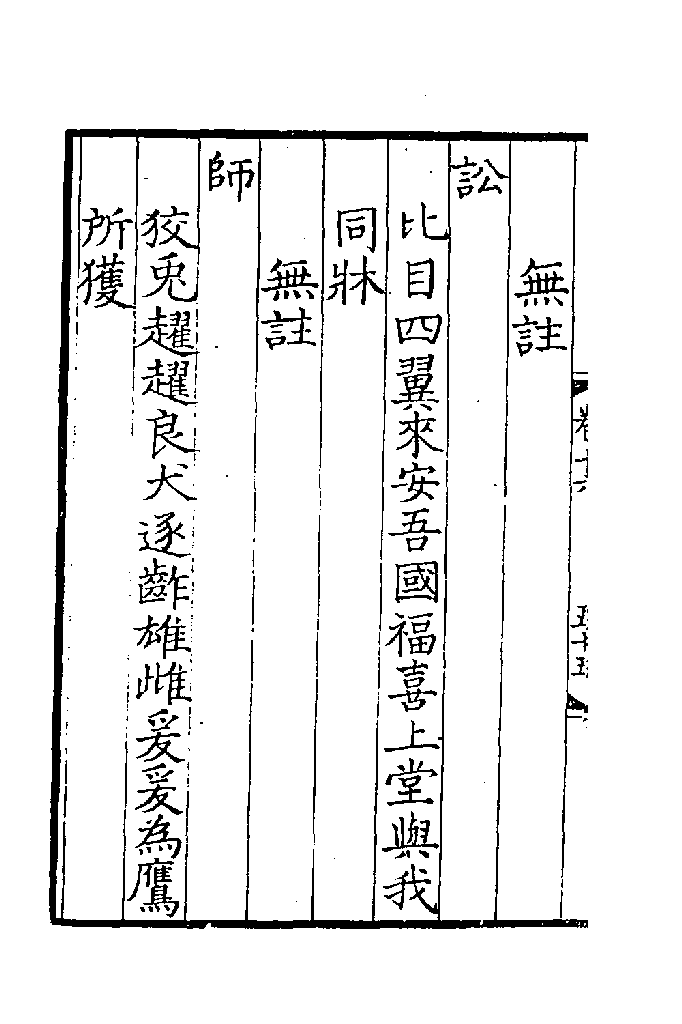 無註
訟
比目四翼來安吾國福喜上堂與我
同牀
無註
師
狡兎趯趯良犬逐齚雄雌爰爰為鷹
所獲